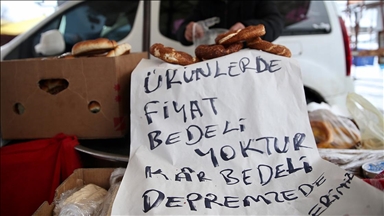 ÜRÜNLERDE
FİYAT
BEDELİ
YOKTUR
KÂR BEDELİ
DEPREMZEDE